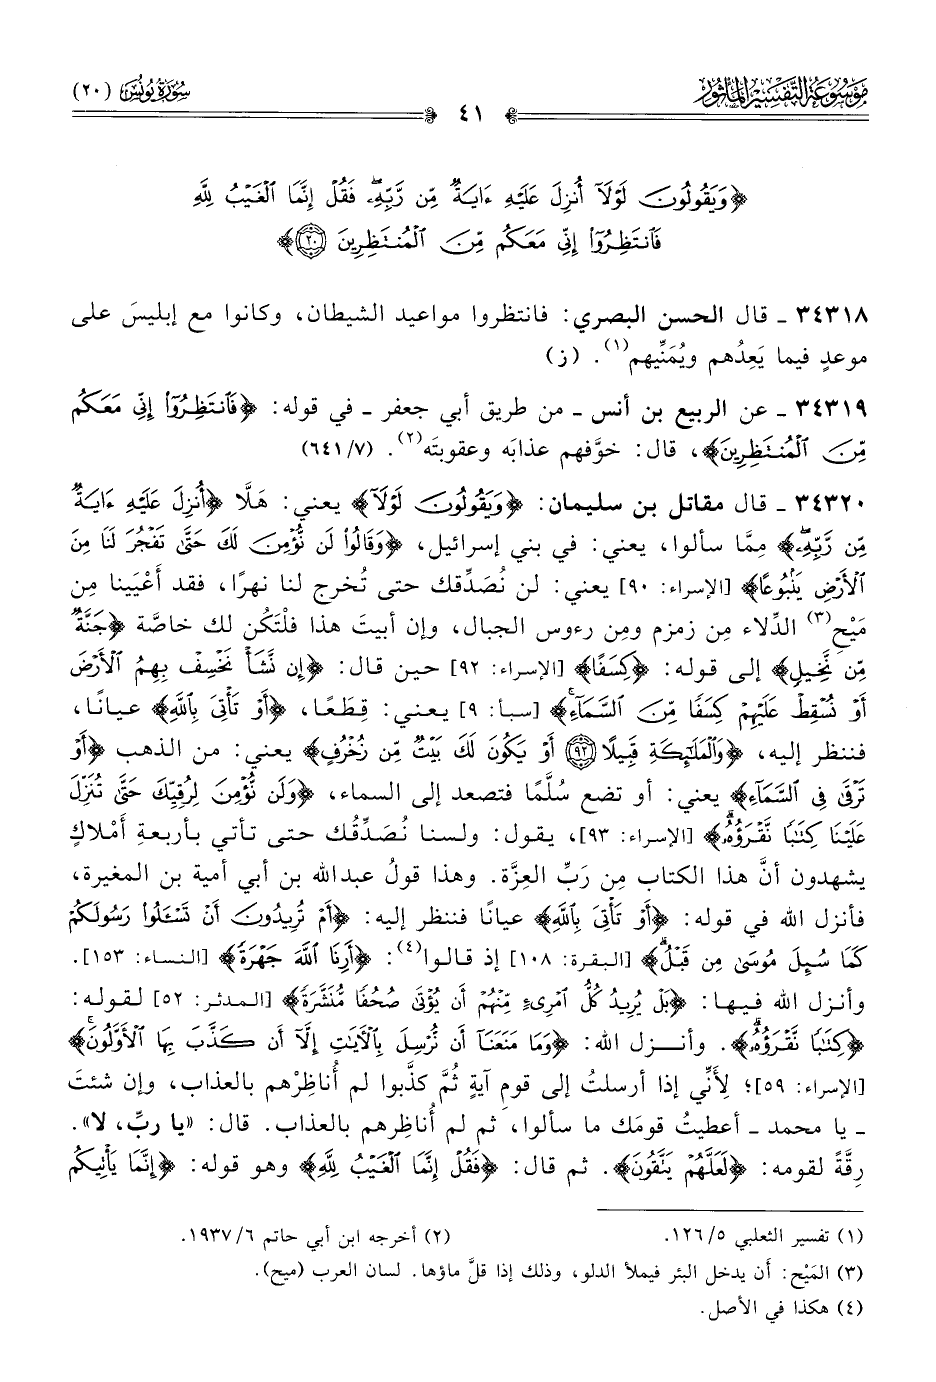 مَوْسُوعَةُ التَّفْسِيرِ الْمَأْثُورِ
سُورَةُ يُونُسَ (٢٠)
٤١
﴿وَيَقُولُونَ لَوْلَآ أُنزِلَ عَلَيْهِ ءَايَةٌ مِّن رَّبِّهِۦ فَقُلْ إِنَّمَا ٱلْغَيْبُ لِلَّهِ
فَٱنتَظِرُوٓا۟ إِنِّى مَعَكُم مِّنَ ٱلْمُنتَظِرِينَ ٢٠﴾
٣٤٣١٨ ـ قال الحسن البصري: فانتظروا مواعيد الشيطان، وكانوا مع إبليسَ على
موعدٍ فيما يَعِدُهم ويُمَنِّيهم(١). (ز)
٣٤٣١٩ ـ عن الربيع بن أنس ـ من طريق أبي جعفر ـ في قوله: ﴿فَٱنتَظِرُوٓا۟ إِنِّى مَعَكُم
مِّنَ ٱلْمُنتَظِرِينَ﴾، قال: خوَّفهم عذابَه وعقوبتَه(٢). (٧/ ٦٤١)
٣٤٣٢٠ ـ قال مقاتل بن سليمان: ﴿وَيَقُولُونَ لَوْلَآ﴾ يعني: هَلَّا ﴿أُنزِلَ عَلَيْهِ ءَايَةٌ
مِّن رَّبِّهِۦ﴾ مِمَّا سألوا، يعني: في بني إسرائيل، ﴿وَقَالُوا۟ لَن نُّؤْمِنَ لَكَ حَتَّىٰ تَفْجُرَ لَنَا مِنَ
ٱلْأَرْضِ يَنۢبُوعًا﴾ [الإسراء: ٩٠] يعني: لن نُصَدِّقك حتى تُخرج لنا نهرًا، فقد أَعْيَينا مِن
مَيْحِ(٣) الدِّلاء مِن زمزم ومِن رءوس الجبال، وإن أبيتَ هذا فلْتَكُن لك خاصَّة ﴿جَنَّةٌ
مِّن نَّخِيلٍ﴾ إلى قوله: ﴿كِسَفًا﴾ [الإسراء: ٩٢] حين قال: ﴿إِن نَّشَأْ نَخْسِفْ بِهِمُ ٱلْأَرْضَ
أَوْ نُسْقِطْ عَلَيْهِمْ كِسَفًا مِّنَ ٱلسَّمَآءِ﴾ [سبأ: ٩] يعني: قِطَعًا، ﴿أَوْ تَأْتِىَ بِٱللَّهِ﴾ عيانًا،
فننظر إليه، ﴿وَٱلْمَلَٰٓئِكَةِ قَبِيلًا ٩٢ أَوْ يَكُونَ لَكَ بَيْتٌ مِّن زُخْرُفٍ﴾ يعني: من الذهب ﴿أَوْ
تَرْقَىٰ فِى ٱلسَّمَآءِ﴾ يعني: أو تضع سُلَّمًا فتصعد إلى السماء، ﴿وَلَن نُّؤْمِنَ لِرُقِيِّكَ حَتَّىٰ تُنَزِّلَ
عَلَيْنَا كِتَٰبًا نَّقْرَؤُهُۥ﴾ [الإسراء: ٩٣]، يقول: ولسنا نُصَدِّقُك حتى تأتي بأربعةِ أمْلاكٍ
يشهدون أنَّ هذا الكتاب مِن رَبِّ العِزَّة. وهذا قولُ عبدالله بن أبي أمية بن المغيرة،
فأنزل الله في قوله: ﴿أَوْ تَأْتِىَ بِٱللَّهِ﴾ عيانًا فننظر إليه: ﴿أَمْ تُرِيدُونَ أَن تَسْـَٔلُوا۟ رَسُولَكُمْ
كَمَا سُئِلَ مُوسَىٰ مِن قَبْلُ﴾ [البقرة: ١٠٨] إذ قالوا(٤): ﴿أَرِنَا ٱللَّهَ جَهْرَةً﴾ [النساء: ١٥٣].
وأنزل الله فيها: ﴿بَلْ يُرِيدُ كُلُّ ٱمْرِئٍ مِّنْهُمْ أَن يُؤْتَىٰ صُحُفًا مُّنَشَّرَةً﴾ [المدثر: ٥٢] لقوله:
﴿كِتَٰبًا نَّقْرَؤُهُۥ﴾. وأنـزل الله: ﴿وَمَا مَنَعَنَآ أَن نُّرْسِلَ بِٱلْءَايَٰتِ إِلَّآ أَن كَذَّبَ بِهَا ٱلْأَوَّلُونَ﴾
[الإسراء: ٥٩]؛ لِأَنِّي إذا أرسلتُ إلى قومٍ آيةٍ ثُمَّ كذَّبوا لم أُناظِرْهم بالعذاب، وإن شئتَ
ـ يا محمد ـ أعطيتُ قومَك ما سألوا، ثم لم أُناظرهم بالعذاب. قال: «يا ربِّ، لا».
رِقَّةً لقومه: ﴿لَعَلَّهُمْ يَتَّقُونَ﴾. ثم قال: ﴿فَقُلْ إِنَّمَا ٱلْغَيْبُ لِلَّهِ﴾ وهو قوله: ﴿إِنَّمَا يَأْتِيكُم
(١) تفسير الثعلبي ٥/ ١٢٦. (٢) أخرجه ابن أبي حاتم ٦/ ١٩٣٧.
(٣) المَيْح: أن يدخل البئر فيملأ الدلو، وذلك إذا قلَّ ماؤها. لسان العرب (ميح).
(٤) هكذا في الأصل.